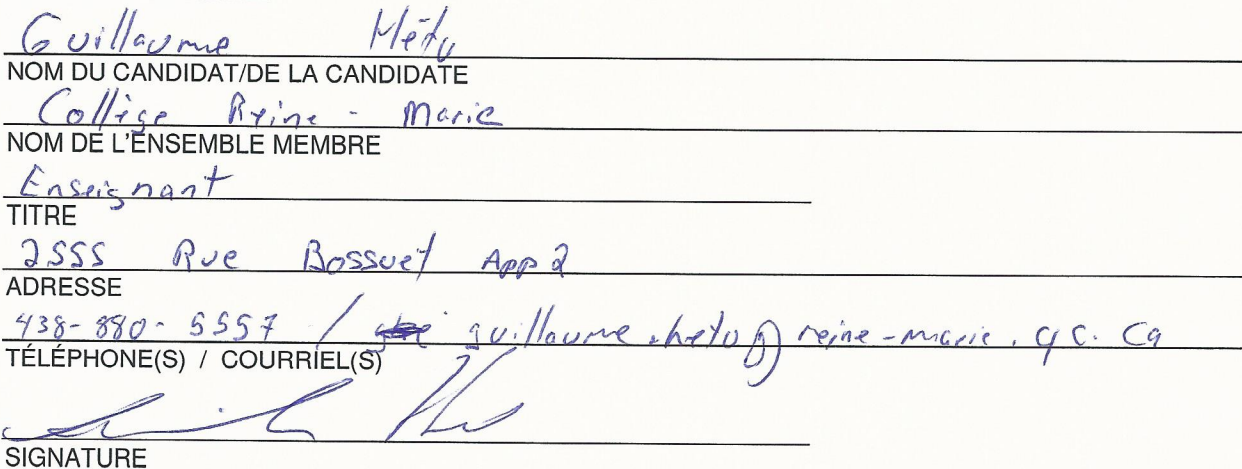 Guillaume Hétu
NOM DU CANDIDAT/DE LA CANDIDATE
Collège Reine-Marie
NOM DE L'ENSEMBLE MEMBRE
Enseignant
TITRE
2555 Rue Bossuet App 2
ADRESSE
438-880-5557 / guillaume.hetu@reine-marie.qc.ca
TÉLÉPHONE(S) / COURRIEL(S)
SIGNATURE